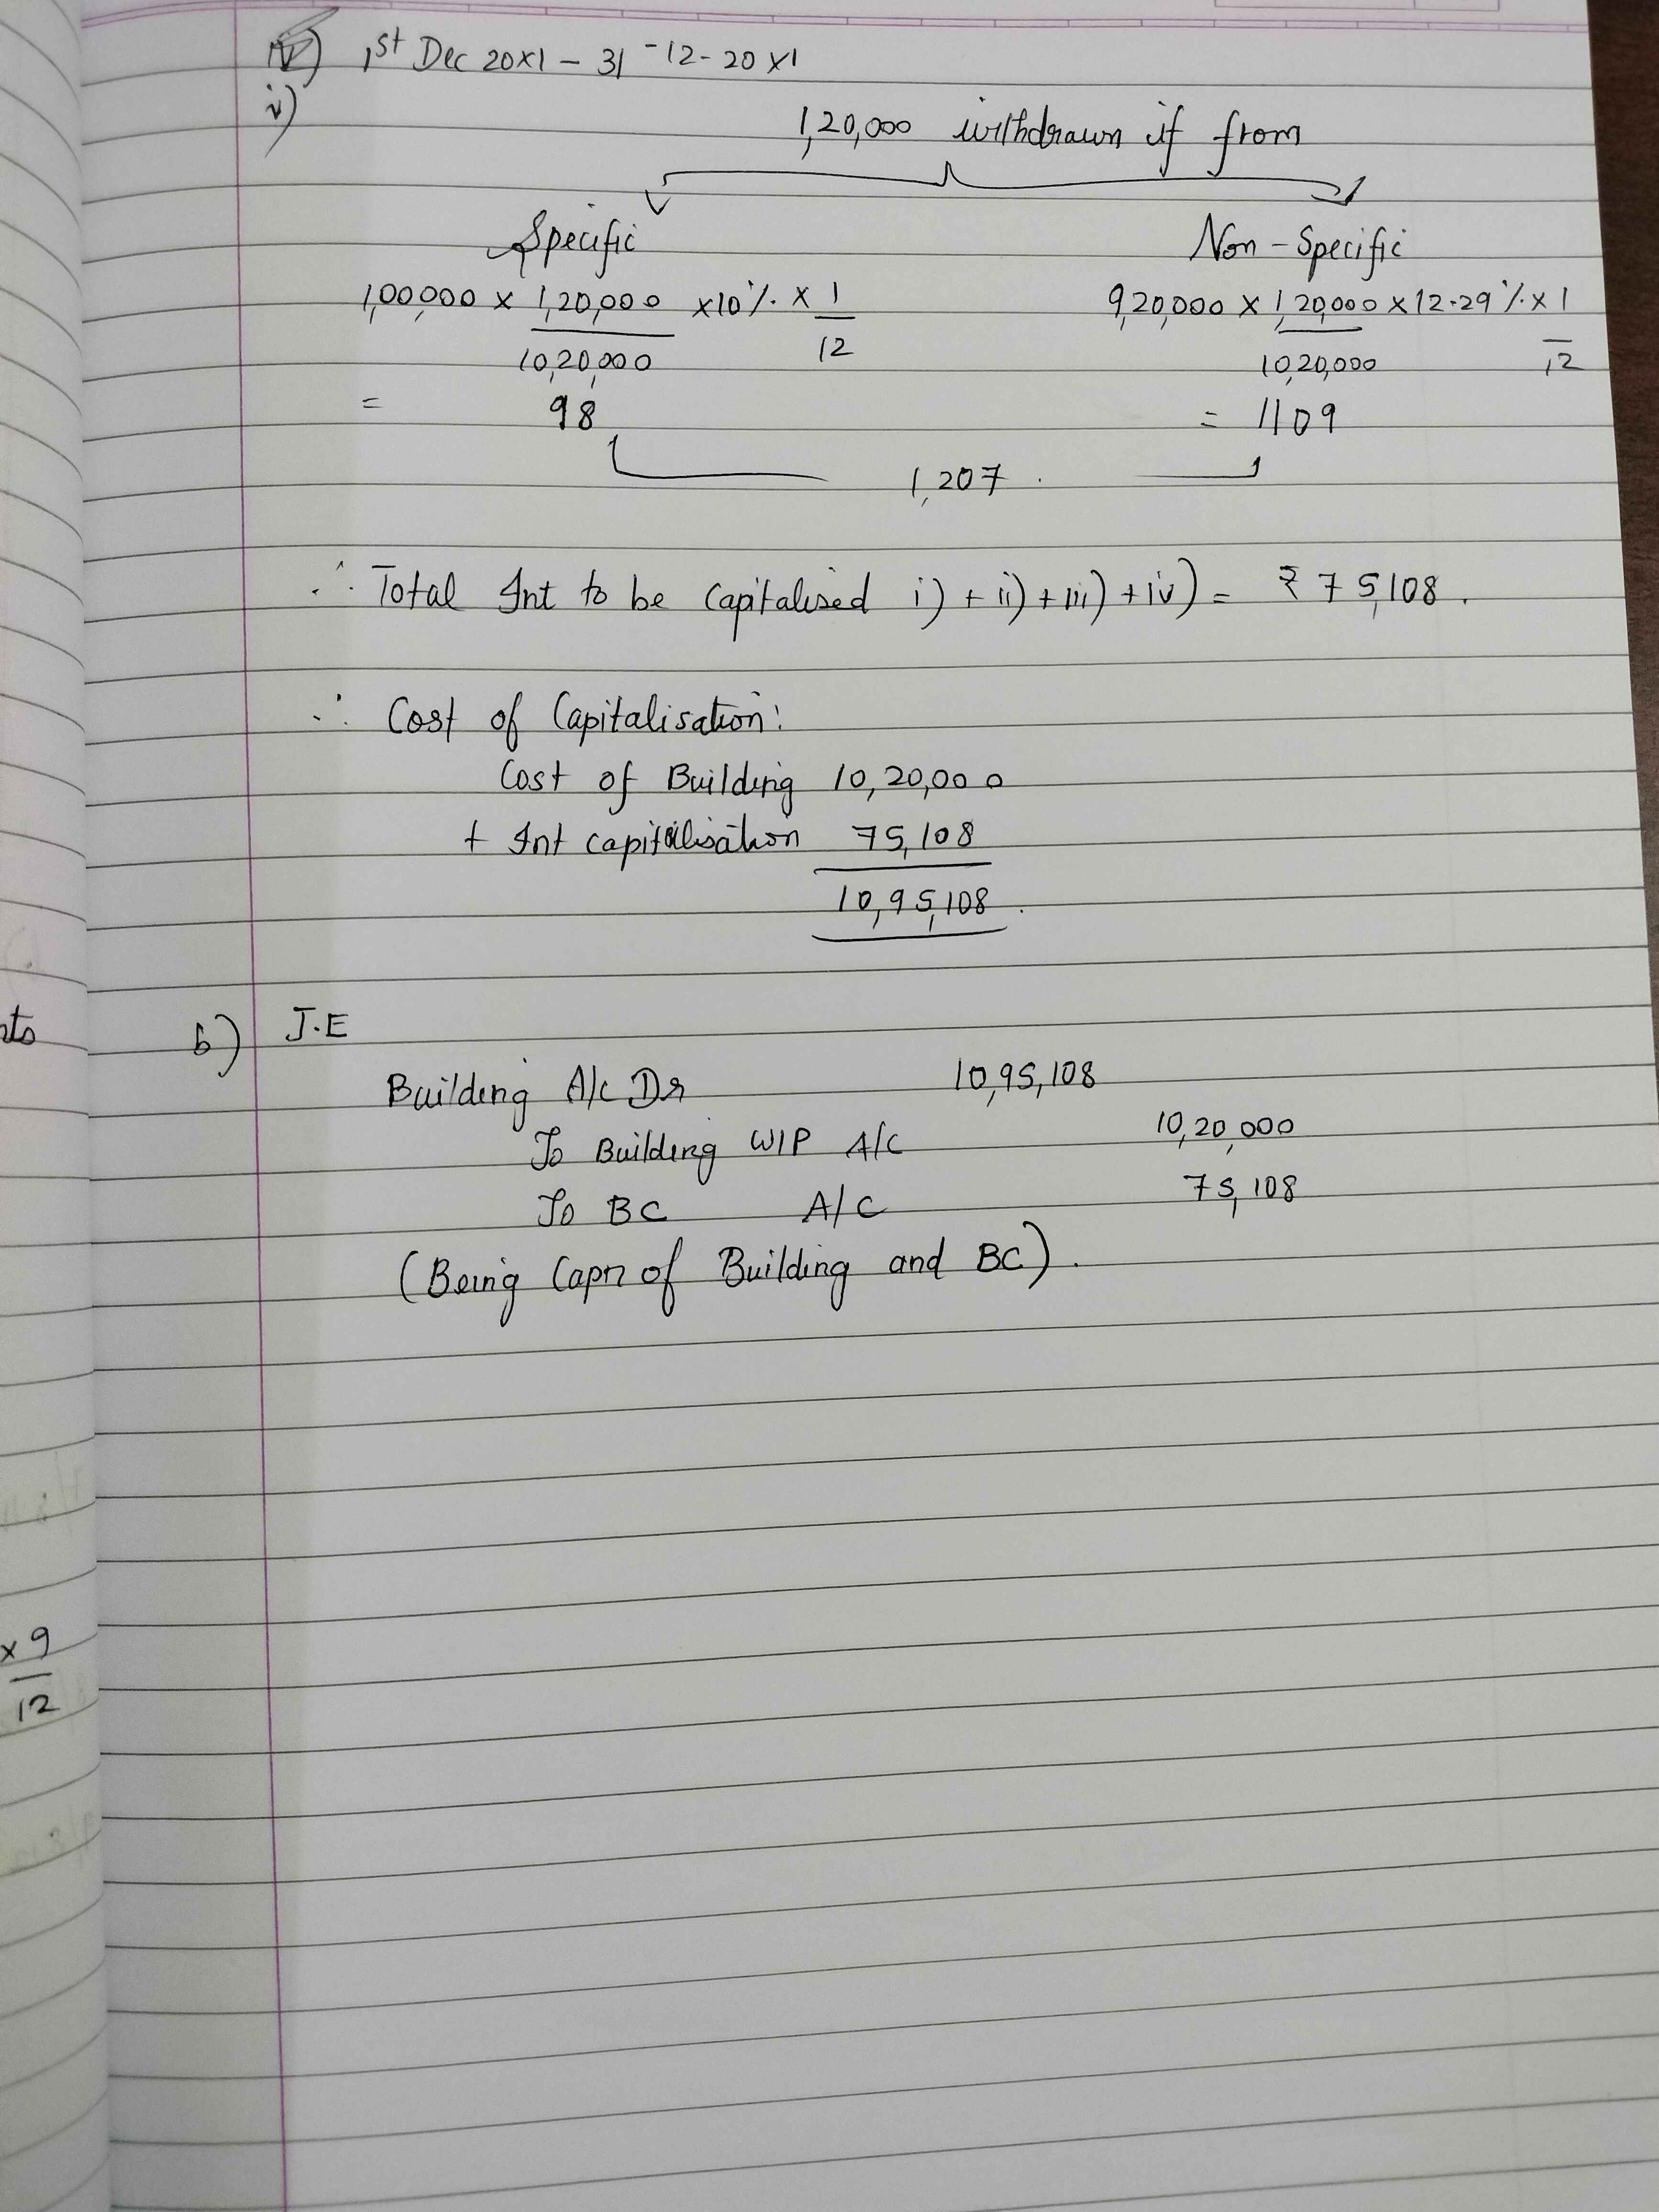 iv) 1st Dec 20X1 – 31-12-20X1
1,20,000 withdrawn if from
Specific Non-Specific
1,00,000 x 1,20,000 x10% x 1 9,20,000 x 1,20,000 x 12.29% x 1
10,20,000 12 10,20,000 12
= 98 = 1109
1,207.
∴ Total Int to be Capitalised i) + ii) + iii) + iv) = ₹ 75,108.
∴ Cost of Capitalisation:
Cost of Building 10,20,000
+ Int capitalisation 75,108
10,95,108.
nts
b) J.E
Building A/c Dr 10,95,108
To Building WIP A/C 10,20,000
To BC A/C 75,108
(Being Capn of Building and BC).
x 9
12